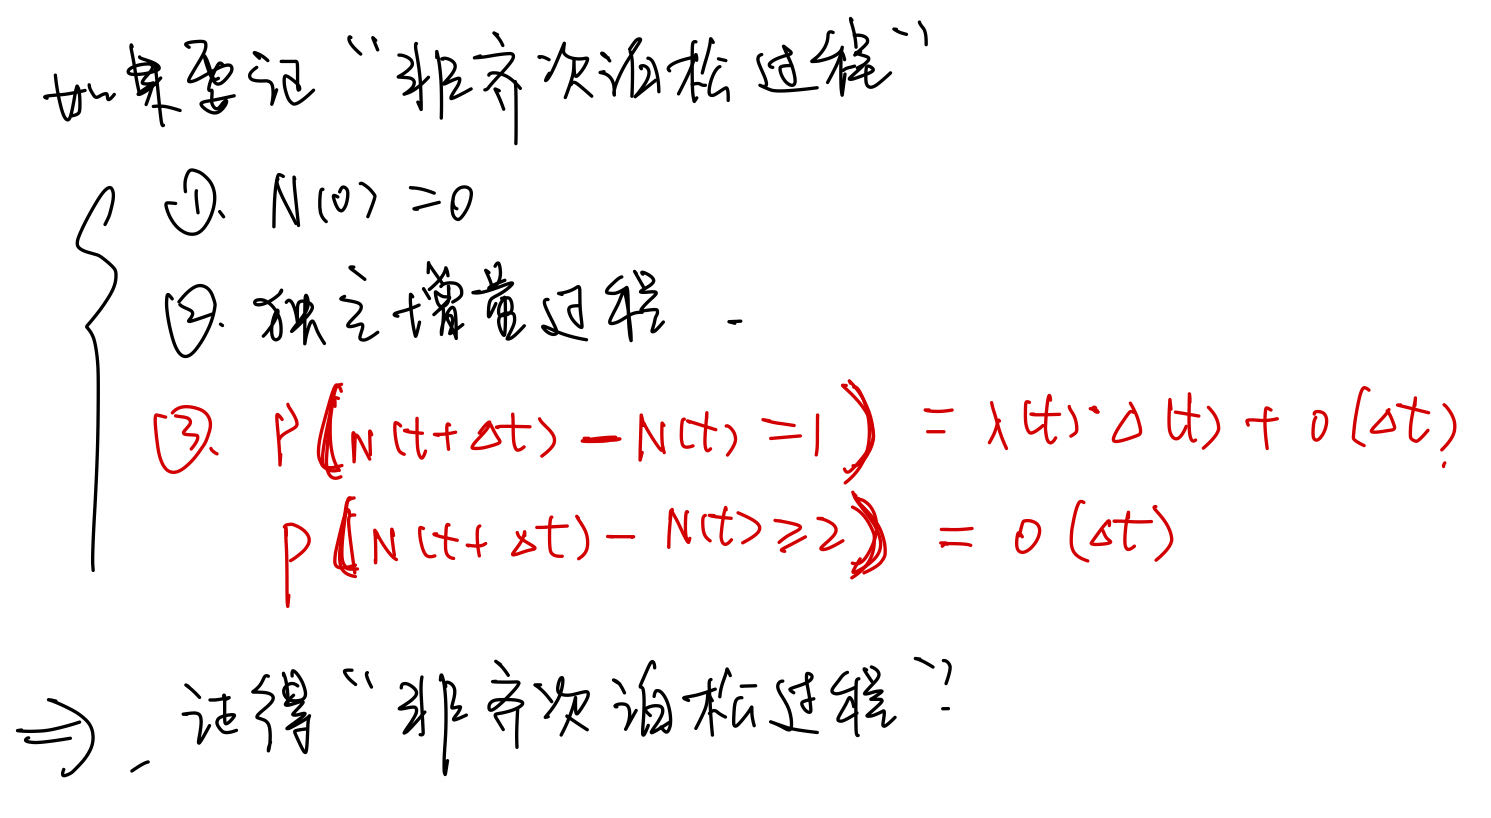 如果要记“非齐次泊松过程”
①. N(0) = 0
②. 独立增量过程.
③. P(N(t+Δt) - N(t) = 1) = λ(t)·Δ(t) + o(Δt).
P(N(t+Δt) - N(t) ≥ 2) = o(Δt)
⇒. 记得“非齐次泊松过程”?